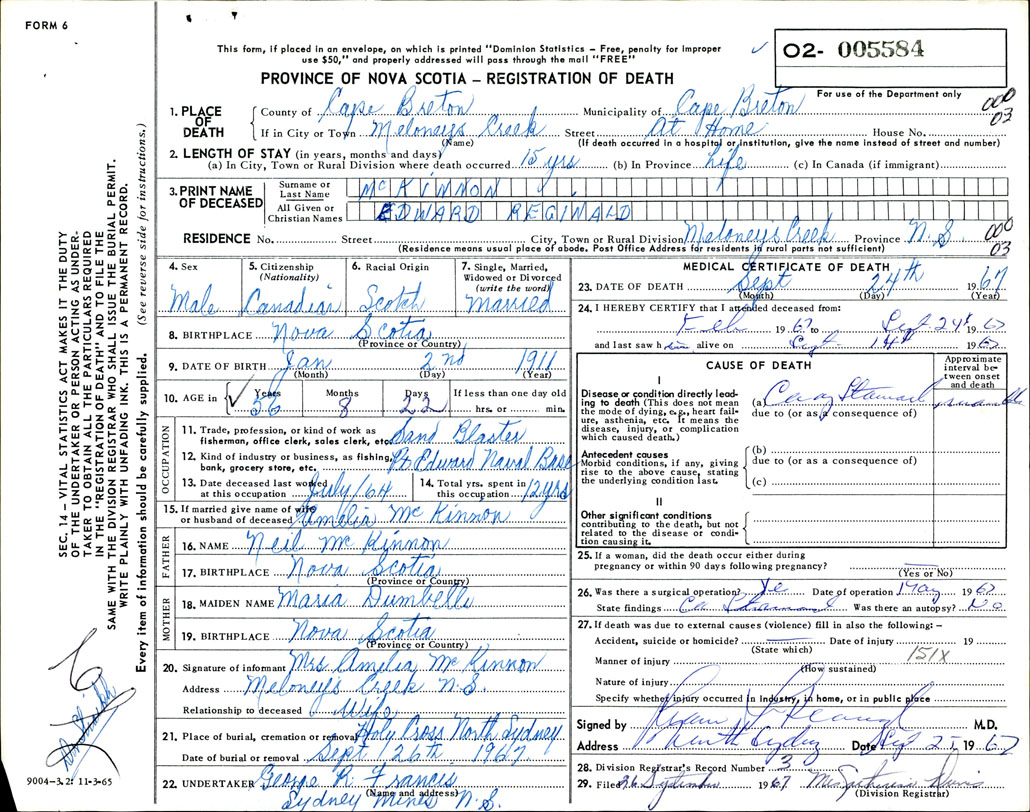 FORM 6
This form, if placed in an envelope, on which is printed "Dominion Statistics – Free, penalty for improper
use $50," and properly addressed will pass through the mail "FREE"
02- 005584
PROVINCE OF NOVA SCOTIA – REGISTRATION OF DEATH
For use of the Department only
000
03
1. PLACE OF DEATH
County of Cape Breton Municipality of Cape Breton
If in City or Town Meloney's Creek Street At Home House No.
(Name) (If death occurred in a hospital or institution, give the name instead of street and number)
2. LENGTH OF STAY (in years, months and days)
(a) In City, Town or Rural Division where death occurred 15 yrs (b) In Province Life (c) In Canada (if immigrant)
3. PRINT NAME OF DECEASED
Surname or Last Name McKINNON
All Given or Christian Names EDWARD REGINALD
RESIDENCE No. Street City, Town or Rural Division Meloney's Creek Province N.S.
(Residence means usual place of abode. Post Office Address for residents in rural parts not sufficient)
000
03
4. Sex Male
5. Citizenship (Nationality) Canadian
6. Racial Origin Scotch
7. Single, Married, Widowed or Divorced (write the word) Married
8. BIRTHPLACE Nova Scotia
(Province or Country)
9. DATE OF BIRTH Jan 2nd 1911
(Month) (Day) (Year)
10. AGE in Years 56 Months 8 Days 22 If less than one day old hrs. or min.
OCCUPATION
11. Trade, profession, or kind of work as fisherman, office clerk, sales clerk, etc. Sand Blaster
12. Kind of industry or business, as fishing, bank, grocery store, etc. Pt Edward Naval Base
13. Date deceased last worked at this occupation July/64
14. Total yrs. spent in this occupation 12 yrs
15. If married give name of wife or husband of deceased Amelia McKinnon
FATHER
16. NAME Neil McKinnon
17. BIRTHPLACE Nova Scotia
(Province or Country)
MOTHER
18. MAIDEN NAME Maria Dumbell
19. BIRTHPLACE Nova Scotia
(Province or Country)
20. Signature of informant Mrs Amelia McKinnon
Address Meloney's Creek N.S.
Relationship to deceased Wife
21. Place of burial, cremation or removal Holy Cross North Sydney
Date of burial or removal Sept 26th 1967
22. UNDERTAKER George R. Francis
(Name and address)
Sydney Mines N.S.
MEDICAL CERTIFICATE OF DEATH
23. DATE OF DEATH Sept 24th 1967
(Month) (Day) (Year)
24. I HEREBY CERTIFY that I attended deceased from:
Feb 1967 to Sept 24th 1967
and last saw him alive on Sept 14th 1967
CAUSE OF DEATH
Approximate interval between onset and death
I
Disease or condition directly leading to death (This does not mean the mode of dying, e.g., heart failure, asthenia, etc. It means the disease, injury, or complication which caused death.)
(a) Ca of Stomach
due to (or as a consequence of)
Antecedent causes
Morbid conditions, if any, giving rise to the above cause, stating the underlying condition last.
(b)
due to (or as a consequence of)
(c)
II
Other significant conditions
contributing to the death, but not related to the disease or condition causing it.
25. If a woman, did the death occur either during
pregnancy or within 90 days following pregnancy?
(Yes or No)
26. Was there a surgical operation? Date of operation May 1967
State findings Ca Stomach Was there an autopsy? No
27. If death was due to external causes (violence) fill in also the following: –
Accident, suicide or homicide? Date of injury 19
(State which)
Manner of injury 151X
(How sustained)
Nature of injury
Specify whether injury occurred in industry, in home, or in public place
Signed by M.D.
Address North Sydney Date Sept 25 1967
28. Division Registrar's Record Number 3
29. Filed 26 September 1967 Davis
(Division Registrar)
SEC. 14 – VITAL STATISTICS ACT MAKES IT THE DUTY
OF THE UNDERTAKER OR PERSON ACTING AS UNDER-
TAKER TO OBTAIN ALL THE PARTICULARS REQUIRED
IN THE "REGISTRATION OF DEATH" AND TO FILE THE
SAME WITH THE DIVISION REGISTRAR WHO SHALL ISSUE THE BURIAL PERMIT.
WRITE PLAINLY WITH UNFADING INK. THIS IS A PERMANENT RECORD.
Every item of information should be carefully supplied. (See reverse side for instructions.)
9004–3.2: 11-3-65